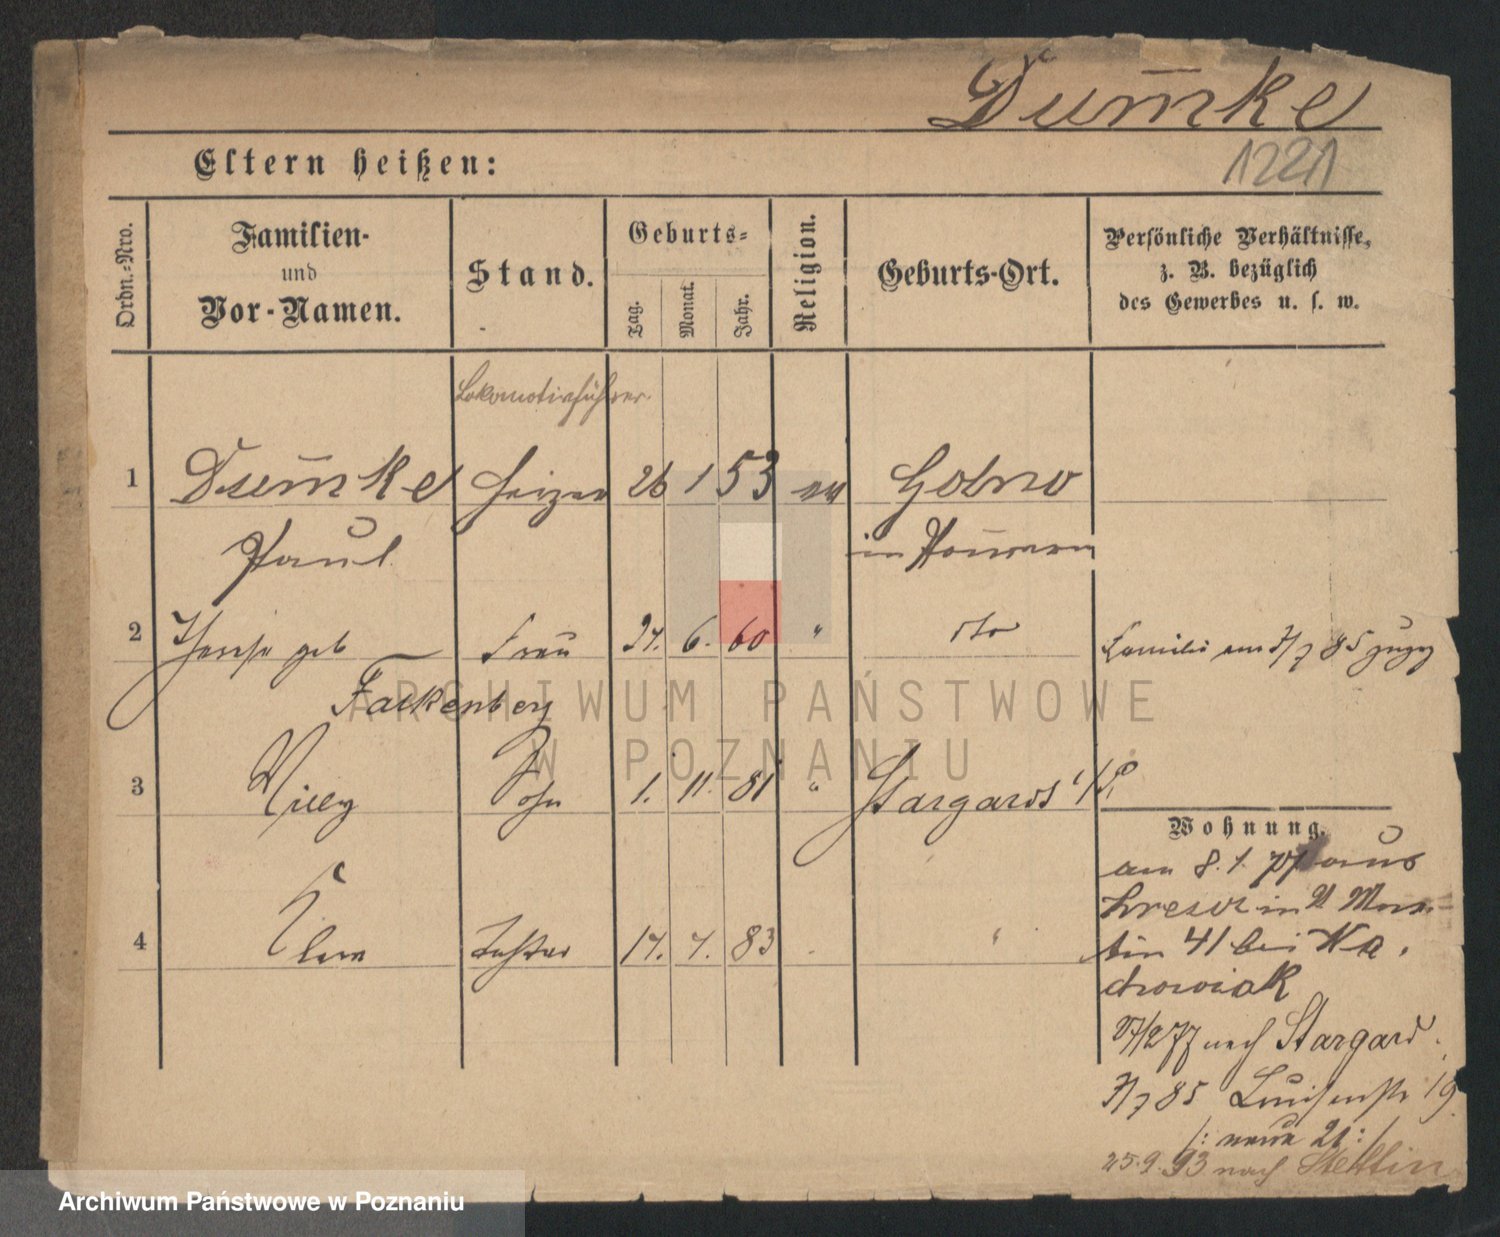 Dum̄ke
1221
Eltern heißen:
Ordn.=Nro.
Familien-
und
Vor-Namen.
Stand.
Geburts=
Tag.
Monat.
Jahr.
Religion.
Geburts-Ort.
Persönliche Verhältnisse,
z. B. bezüglich
des Gewerbes u. s. w.
Lokomotivführer
1 Dum̄ke Heizer 26 1 53 ev
Paul in Pom̄ern
2 geb Frau 6. 60 " dto Familie am 3/7 85 zugez
Falkenberg
3 Willy Sohn 1. 11. 81 " Stargard i/P.
Wohnung.
am 8. 1. 77 aus
in
4 Tochter 17. 7. 83 "
tin 41 bei
27/2 77 nach Stargard.
3/7 85 Louisenstr 19
/: neue 21 :/
25.9.93 nach Stettin
ARCHIWUM PAŃSTWOWE
W POZNANIU
Archiwum Państwowe w Poznaniu